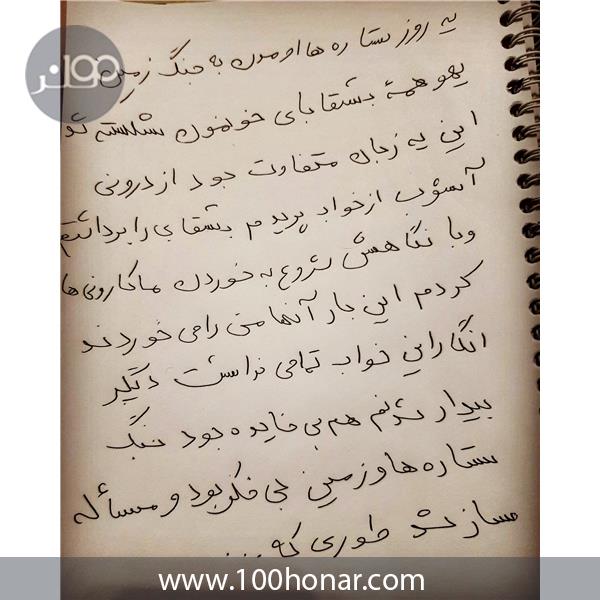 یه روز ستاره ها اومدن به جنگ زمین
یهو همهٔ بشقابای خونمون شکسته شد
این یه زمان متفاوت بود از درونی
آشوب از خواب پریدم بشقابی را برداشتم
و با نگاهش شروع به خوردن ماکارونی ها
کردم این بار آنها من را می خوردند
انگار این خواب تمامی نداشت دیگر
بیدار شدنم هم بی فایده بود جنگ
ستاره ها و زمین بی فکر بود و مسأله
ساز شد طوری که ...
www.100honar.com